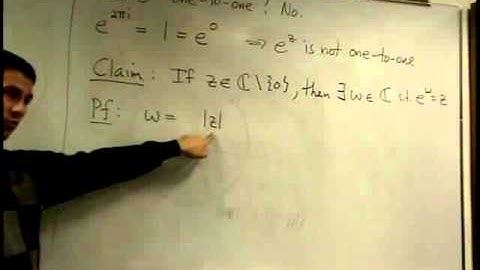 one-to-one? No.
e^{2πi} = 1 = e^0 ⇒ e^z is not one-to-one
Claim: If z ∈ ℂ \ {0}, then ∃ w ∈ ℂ s.t. e^w = z
Pf: w = |z|